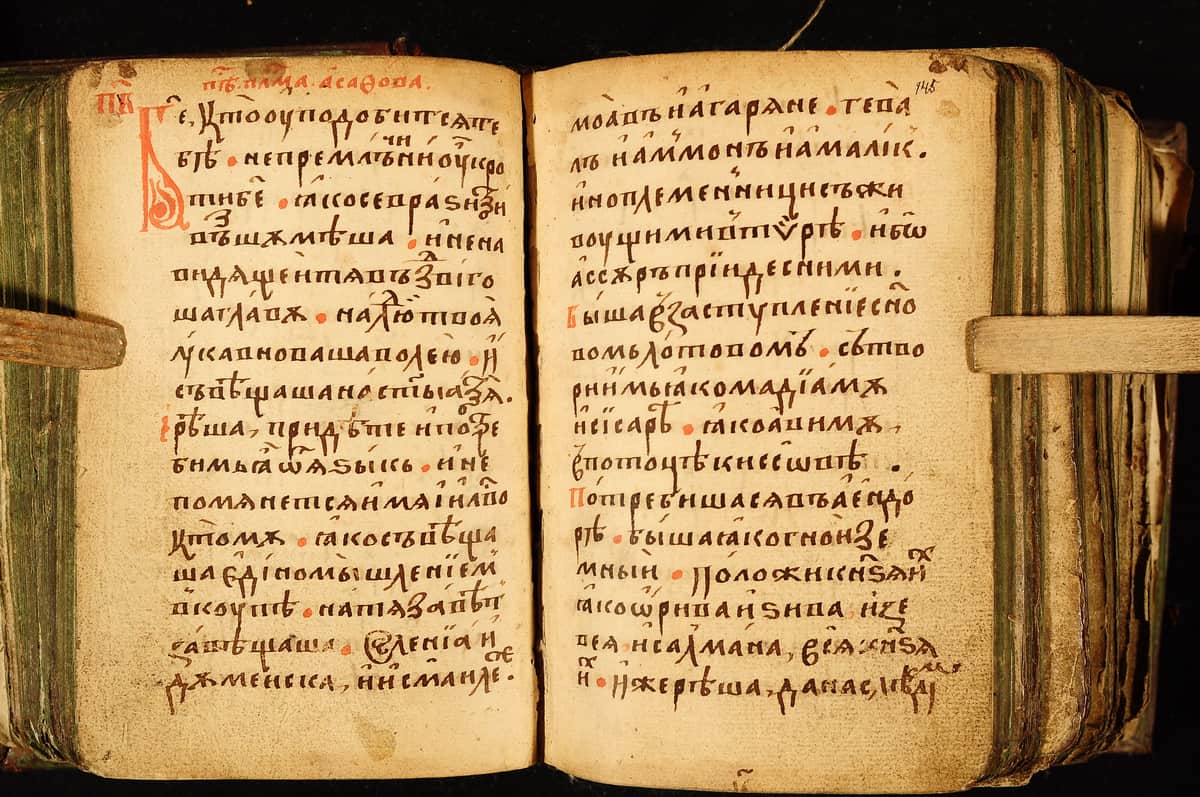 пѣⷭ҇. п҃лѡⷨа. а҆са́ѳова.
п҃в
Б҃е, кто̀ оу҆подо́битсѧ те
бѣ̀. не премлъчѝ ни оу҆кро
ти б҃е. ꙗ҆́ко се врази̑ твоѝ
въⷥшѫмѣша. и҆ нена
видѧщеи тѧ въⷥдви́го
ша гла́вѫ. на лю́ⷣ твоѧ̀
лꙋкавноваша волею. и҆
съвѣщаша на ст҃ы́ѧ твоѧ̀.
рѣша, прїидѣте и҆ потре
бимъ ѧ҆̀ ѿ ѧ҆ꙁы́къ. и҆ не
помѧнетсѧ и҆́мѧ і҆и҃лво
к томꙋ̀. ꙗ҆́ко съвѣща
ша є҆диномы́шленїемъ
вкоупѣ. на тѧ завѣт
завѣщаша. селенїа и҆
дѫмейска, и҆ и҆сманле.
145
моавъ и҆ а҆гарѧне. гева
лъ и҆ а҆ммонъ и҆ а҆мали́к.
и҆ноплеменници съ жи
воущими въ тѵ́рѣ. и҆бѡ
а҆ссѫръ прїиде с ними.
бы́ша в заступленїе сн҃о
вомъ ло́товомъ. сътво
ри и҆̀мъ ꙗ҆́ко мадїамꙋ
и҆ сисарѣ. ꙗ҆́ко а҆вимꙋ,
в потоцѣ кнссовѣ.
Потребишасѧ въ а҆е҆ндо́
рѣ. бы́ша ꙗ҆́ко гно́и зе
мны́й. положи кн҃ѕѧ и҆́х
ꙗ҆́ко ѡ҆рива и҆ ѕива и҆ зе
веѧ и҆ салмана, всѧ кн҃ѕѧ
и҆́х. и҆́же рѣша, да наслѣди